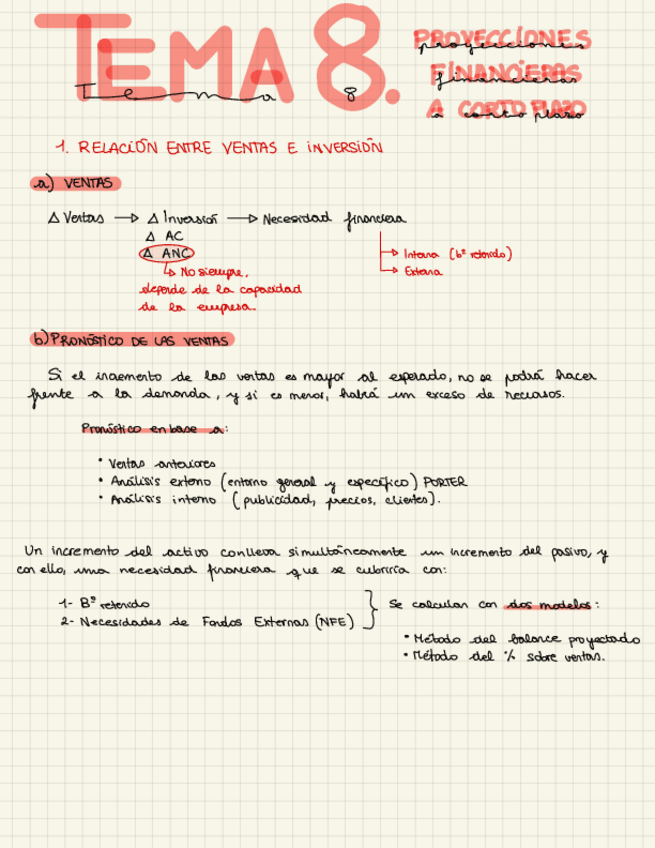 TEMA 8.
Tema 8
PROYECCIONES
proyecciones
FINANCIERAS
financieras
A CORTO PLAZO
a corto plazo
1. RELACIÓN ENTRE VENTAS E INVERSIÓN
a) VENTAS
Δ Ventas → Δ Inversión → Necesidad financiera
Δ AC
Δ ANC
→ Interna (bº retenido)
→ Externa
↳ No siempre,
depende de la capacidad
de la empresa.
b) PRONÓSTICO DE LAS VENTAS
Si el incremento de las ventas es mayor al esperado, no se podrá hacer
frente a la demanda, y si es menor, habrá un exceso de recursos.
Pronóstico en base a:
• Ventas anteriores
• Análisis externo (entorno general y específico) PORTER
• Análisis interno (publicidad, precios, clientes).
Un incremento del activo conlleva simultáneamente un incremento del pasivo, y
con ello, una necesidad financiera que se cubriría con:
1- Bº retenido
2- Necesidades de Fondos Externas (NFE)
Se calculan con dos modelos:
• Método del balance proyectado
• Método del % sobre ventas.